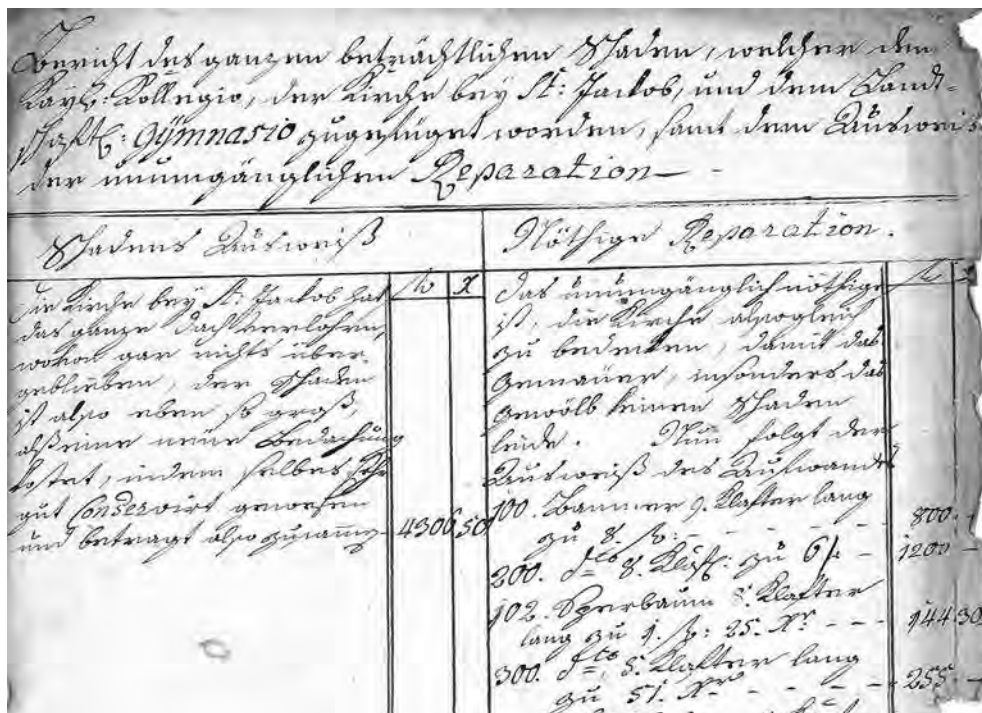 Bericht des ganzen beträchtlichen Schaden, welcher dem
Kayß: Kollegio, der Kirche bey St: Jackob, und dem Land-
schaftl: Gÿmnasio zugefüget worden, samt dem Ausweis
der unumgänglichen Reparation
Schadens Ausweiß
Nöthige Reparation.
Die Kirche bey St: Jackob hat
das ganze Dach verlohren,
wovon gar nichts über-
geblieben, der Schaden
ist also eben so groß,
alß eine neüe Bedachung
kostet, indem selbes sehr
gut Conservirt gewesen
und betragt also zusamm 4306 50
das unumgänglich nöthige
ist, die Kirche alsogleich
zu bedecken, damit das
Gemäuer, insonders das
Gewölb keinen Schaden
leide. Nun folgt der
Ausweiß des Aufwandes
100. Baumer 9. Klafter lang
zu 8. fl: - - - - 800. -
200. dto 8. Klaft: zu 6 f - 1200 -
102. Sperbaum 8. Klafter
lang zu 1. fl: 25. Xr - - - 144 30
300. dto, 5. Klafter lang
zu 51. Xr - - - - 255 -